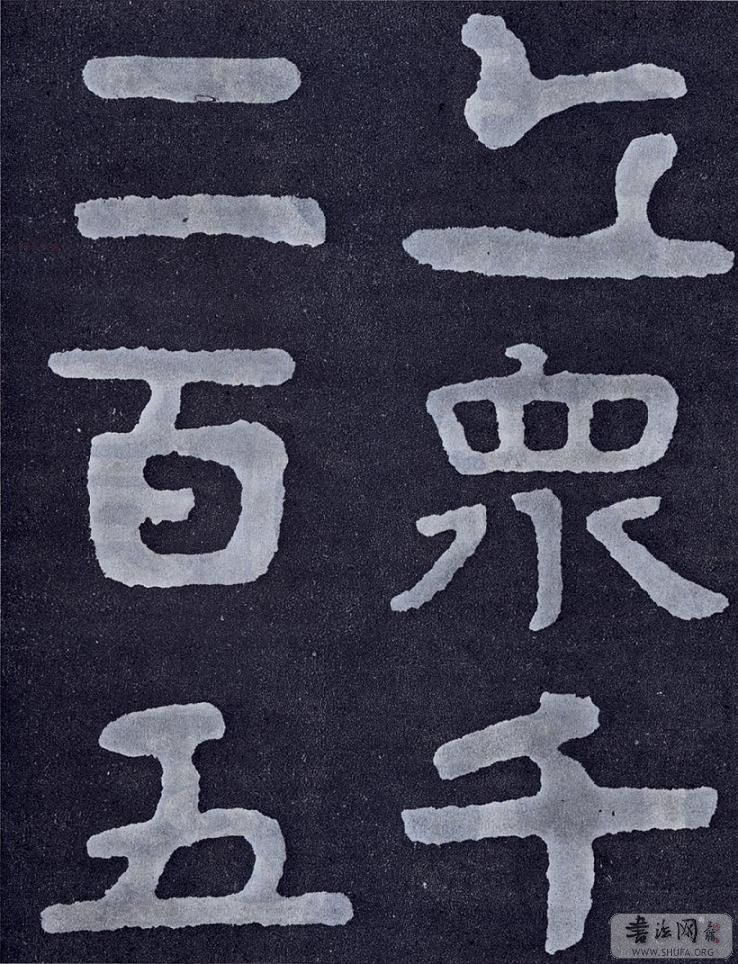 丘衆千
二百五
書法网
WWW.SHUFA.ORG